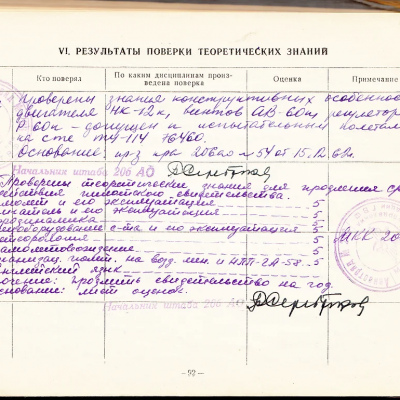 VI. РЕЗУЛЬТАТЫ ПОВЕРКИ ТЕОРЕТИЧЕСКИХ ЗНАНИЙ
Кто поверял
По каким дисциплинам произведена поверка
Оценка
Примечание
Проверены знания конструктивных особеннос
двигателя НК-12к, винтов АВ-60н, регулятор
Р-60н - допущен к испытательным полетам
на с-те ТУ-114 № 76460.
Основание: пр-з 206ао № 54 от 15.12.62г.
Начальник штаба 206 АО
Проверены теоретические знания для продления ср
действия пилотского свидетельства.
самолет и его эксплуатация - 5
двигатель и его эксплуатация - 5
аэродинамика - 5
оборудование с-та и его эксплуатация 5
метеорология - 5
самолетовождение - 5
на возд. лин. и НПП-ГА-58. - 5
английский язык
МКК 20
продлить свидетельство на год.
основание: лист оценок.
Начальник штаба 206 АО
— 92 —